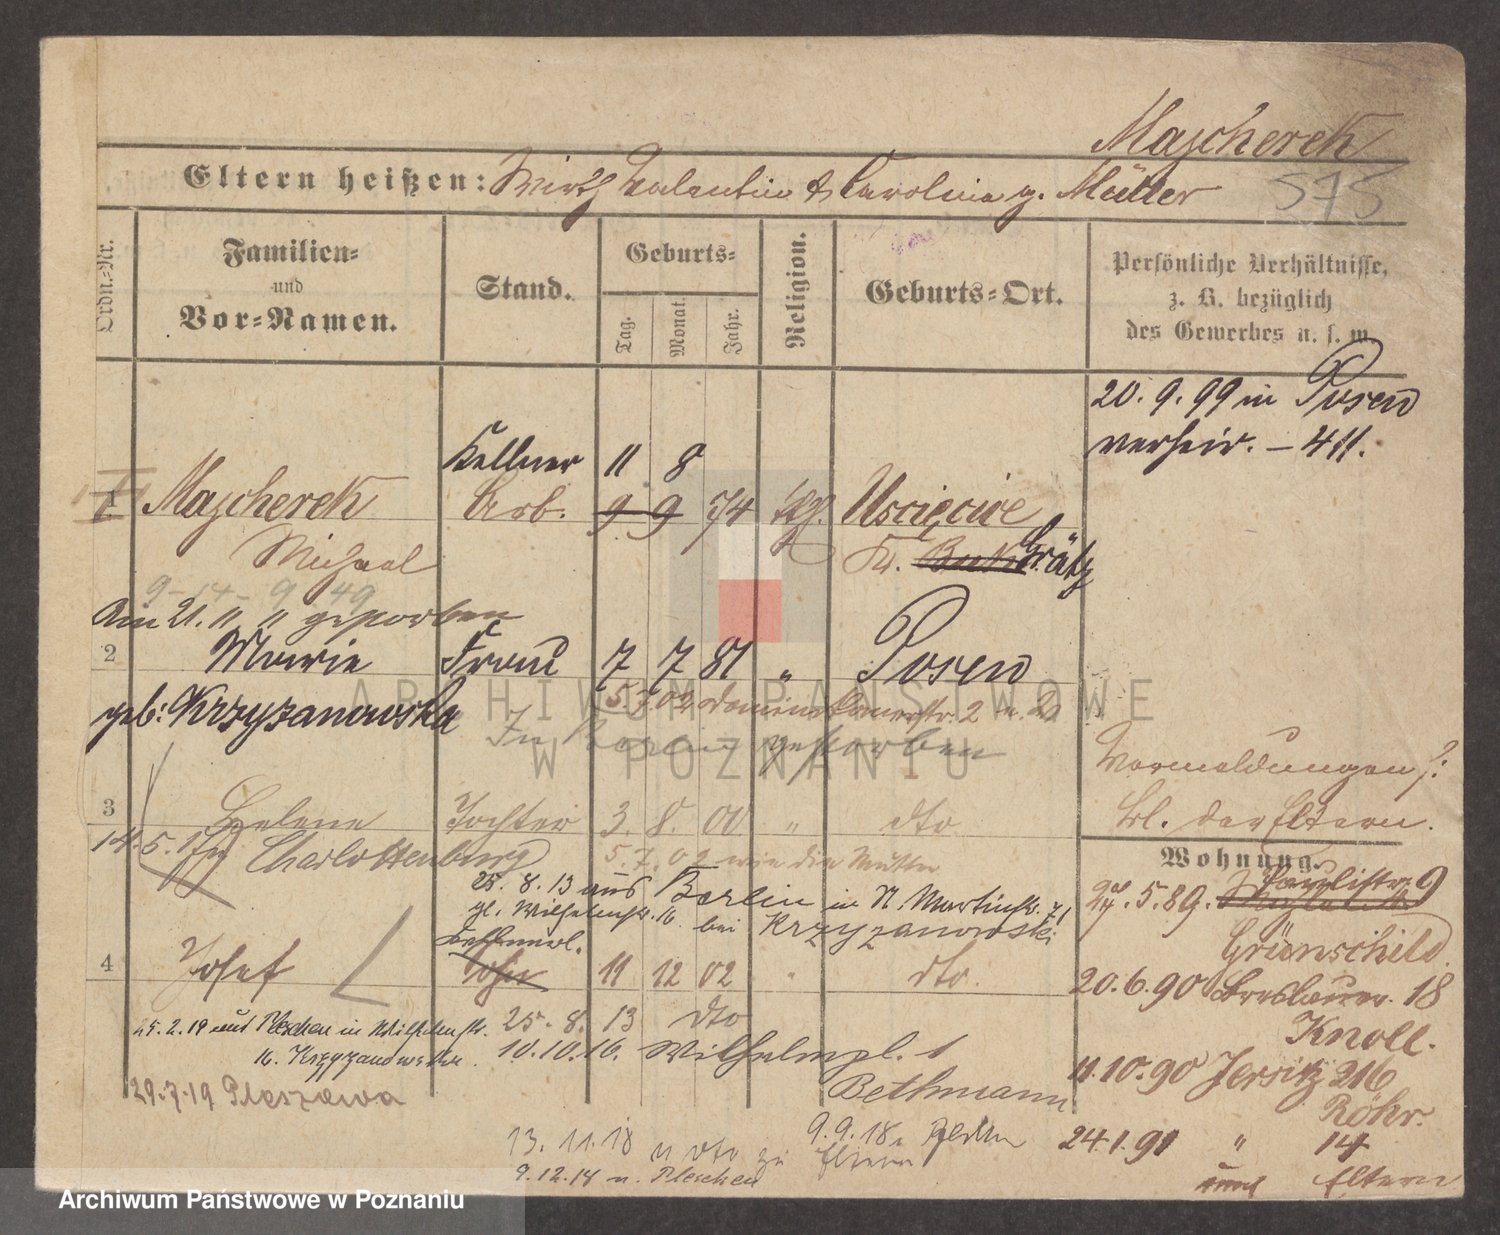 Majcherek
Eltern heißen: Wirth Valentin & Carolina g. Müller
575
Ordn.-Nr.
Familien-
und
Vor-Namen.
Stand.
Geburts-
Tag.
Monat.
Jahr.
Religion.
Geburts-Ort.
Persönliche Verhältnisse,
z. B. bezüglich
des Gewerbes u. s. w.
20. 9. 99 in Posen
verheir. – 411.
Kellner 11 8
1 Majcherek Arb. 9 9 74 kth. Uscięcice
Michael Kr. Buk Grätz
9-14- 9 49
Am 21. " " gestorben
2 Marie Frau 7 7 81 " Posen
geb: Krzyzanowska 5.7.02 2 u.
In Posen gestorben
Vormeldungen s:
Bl. der Eltern.
3 Helene Tochter 3. 8. 00 " dto
14.5.17 Charlottenburg 5.7.02 wie die Mutter
Wohnung.
25. 8. 13 aus Berlin in N Martinstr. 71
gl. Wilhelmstr. 16 bei Krzyzanowski
24.5.89. 9
Grünschild.
4 Josef Sohn 11 12 02 " dto.
20.6.90 Breslauer. 18
Knoll.
25.2.19 aus Pleschen in Wilhelmstr. 25. 8. 13 dto
16. Krzyzanowska. 10.10.16. Wilhelmpl. 1
Bethmann
11.10.90 Jersitz 216
Röhr.
29.7.19 Pleszewa
13. 11. 18 n dto zu 9.9.18 Berlin
Eltern
24.1.91 " 14
9.12.18 n. Pleschen
Eltern
ARCHIWUM PAŃSTWOWE
W POZNANIU
Archiwum Państwowe w Poznaniu